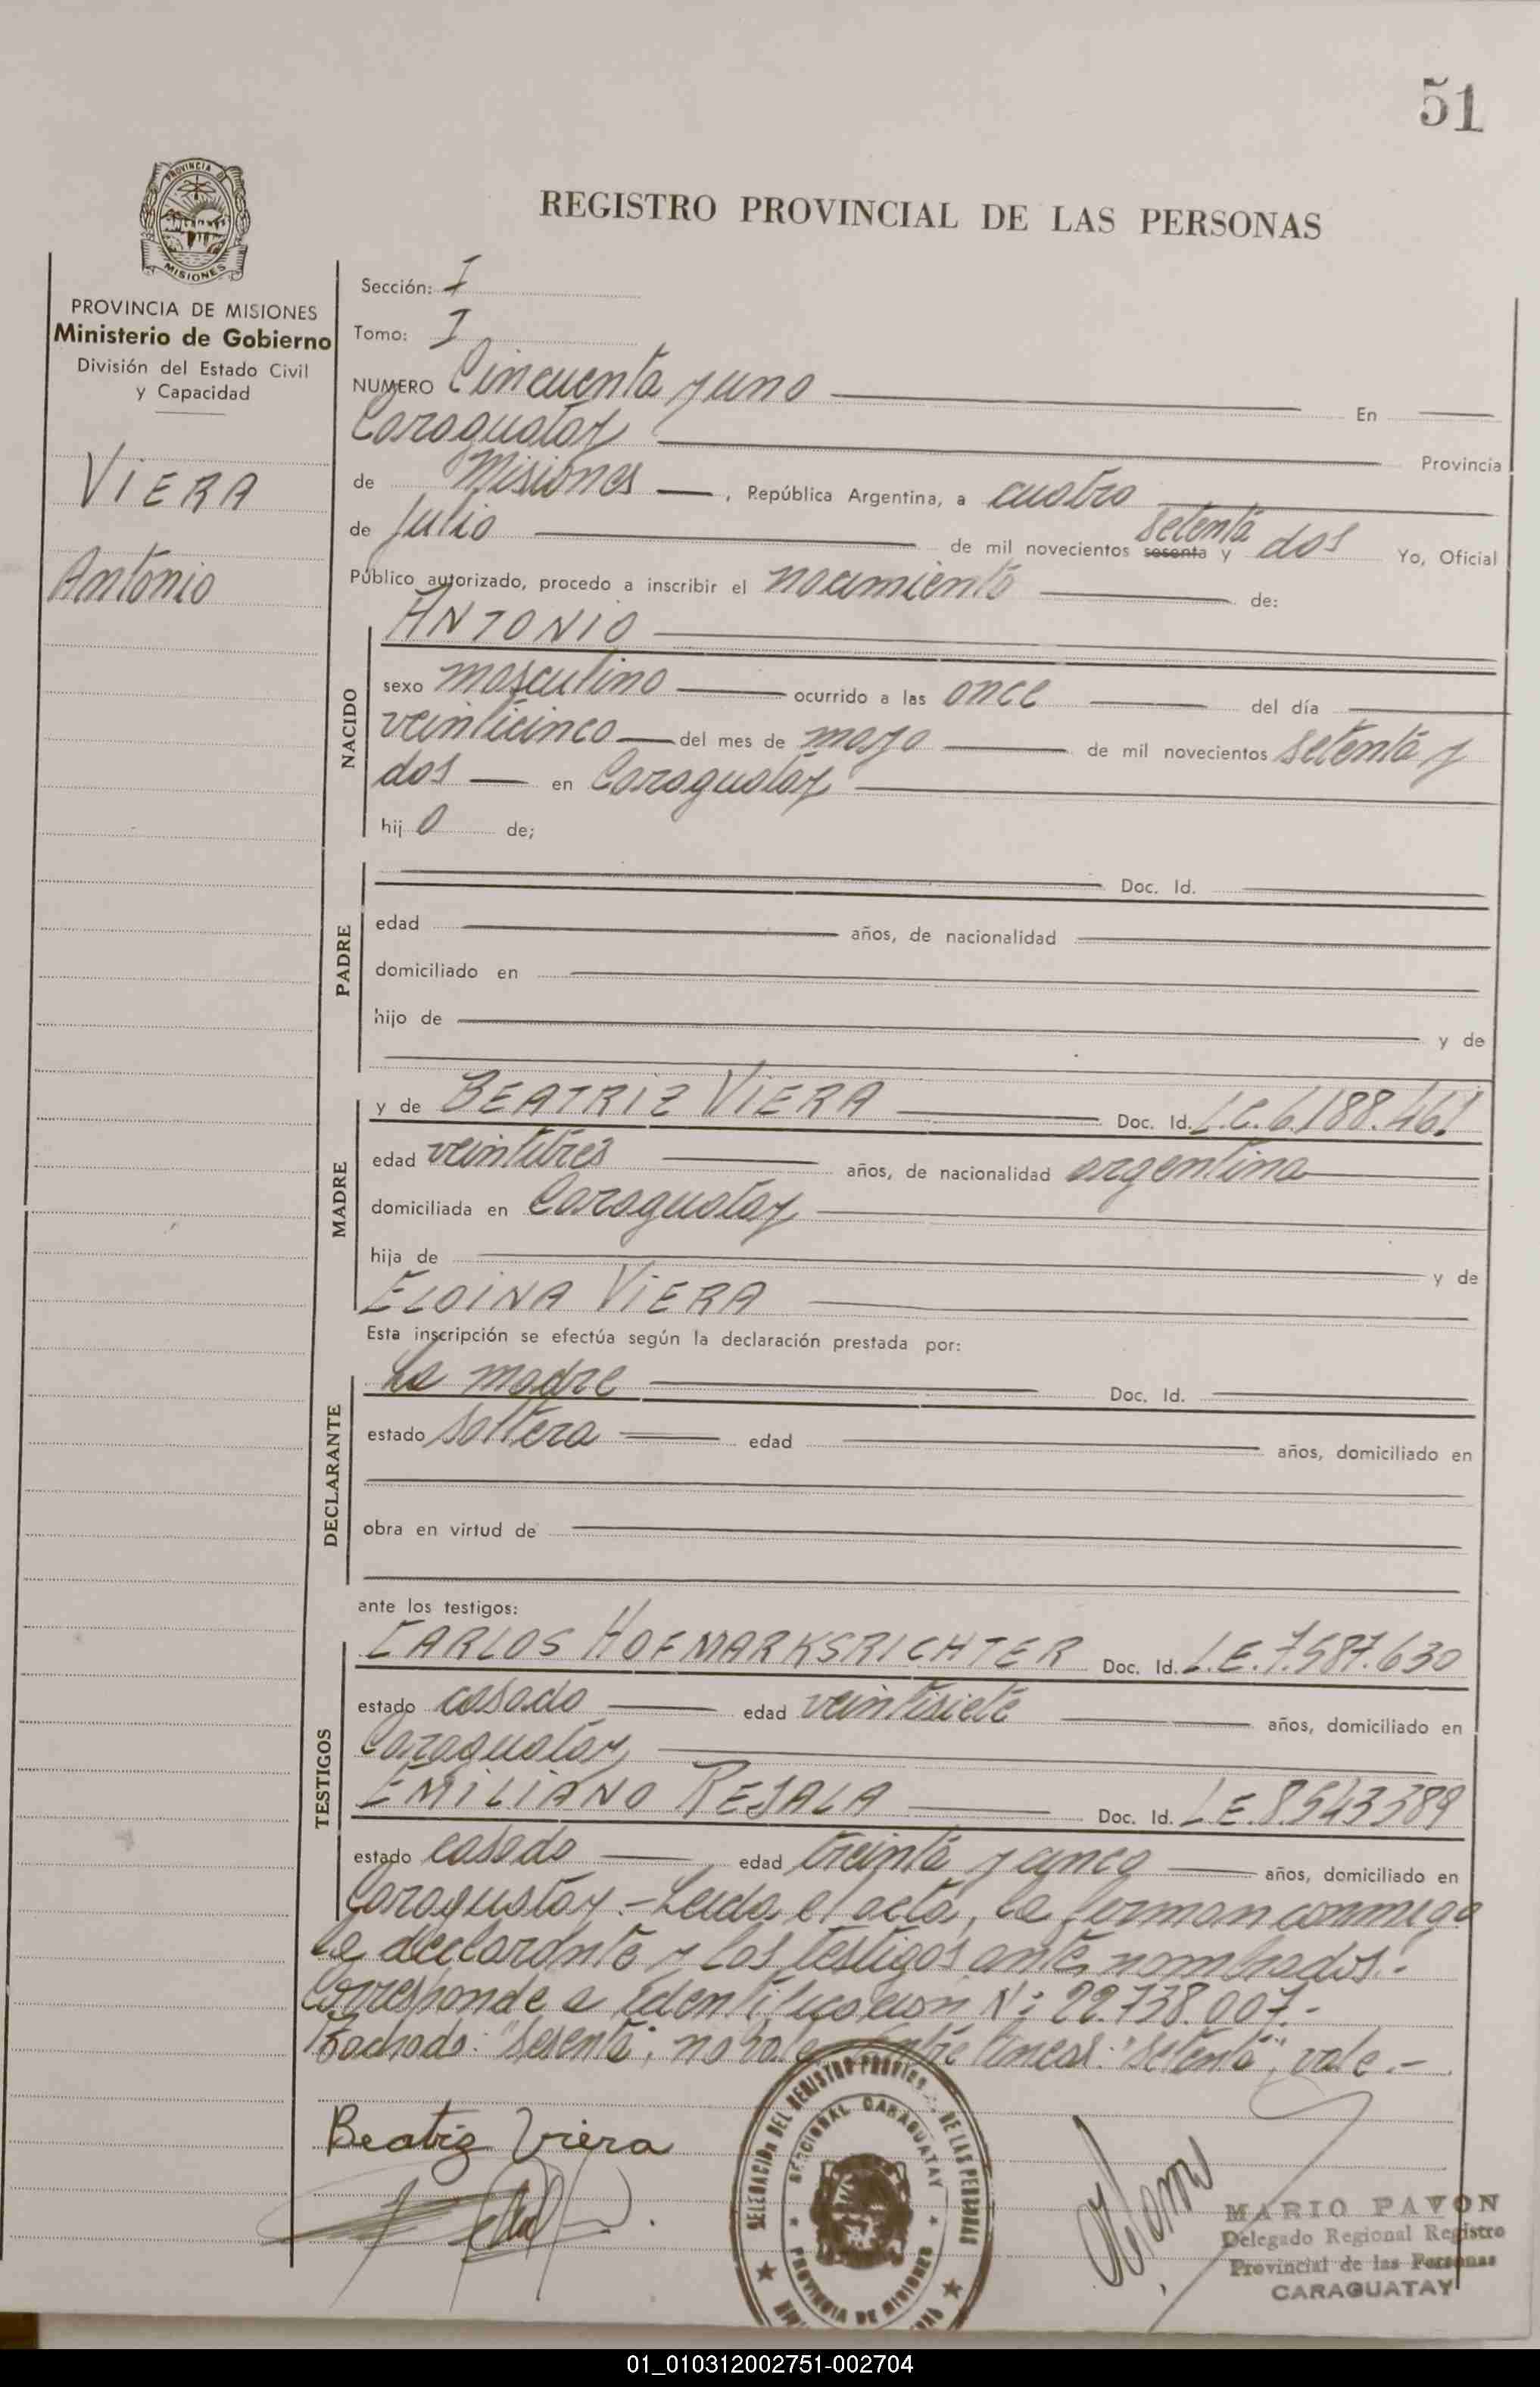 51
PROVINCIA DE
MISIONES
REGISTRO PROVINCIAL DE LAS PERSONAS
PROVINCIA DE MISIONES
Ministerio de Gobierno
División del Estado Civil
y Capacidad
VIERA
Antonio
Sección: I
Tomo: I
NUMERO Cincuenta y uno En
Caraguatay Provincia
de Misiones , República Argentina, a cuatro
setenta
de Julio de mil novecientos sesenta y dos Yo, Oficial
Público autorizado, procedo a inscribir el nacimiento de:
NACIDO
ANTONIO
sexo masculino ocurrido a las once del día
veinticinco del mes de mayo de mil novecientos setenta y
dos en Caraguatay
hij o de;
PADRE
Doc. Id.
edad años, de nacionalidad
domiciliado en
hijo de y de
MADRE
y de BEATRIZ VIERA Doc. Id. L.C. 6.188.461
edad veintitres años, de nacionalidad argentina
domiciliada en Caraguatay
hija de y de
ELOINA VIERA
Esta inscripción se efectúa según la declaración prestada por:
DECLARANTE
La madre Doc. Id.
estado soltera edad años, domiciliado en
obra en virtud de
ante los testigos:
TESTIGOS
CARLOS HOFMARKSRICHTER Doc. Id. L.E. 7.587.630
estado casado edad veintisiete años, domiciliado en
Caraguatay
EMILIANO RESALA Doc. Id. L.E. 8543389
estado casado edad treinta y cinco años, domiciliado en
Caraguatay.- Leida el acta, la firman conmigo
la declarante y los testigos ante nombrados.-
Corresponde a Identificación N: 22.738.007.-
Tachado: "sesenta", no vale, entre lineas: "setenta", vale.-
Beatriz Viera
DELEGACION DEL REGISTRO PROVINCIAL DE LAS PERSONAS
SECCIONAL CARAGUATAY
PROVINCIA DE MISIONES
MARIO PAVON
Delegado Regional Registro
Provincial de las Personas
CARAGUATAY
01_010312002751-002704